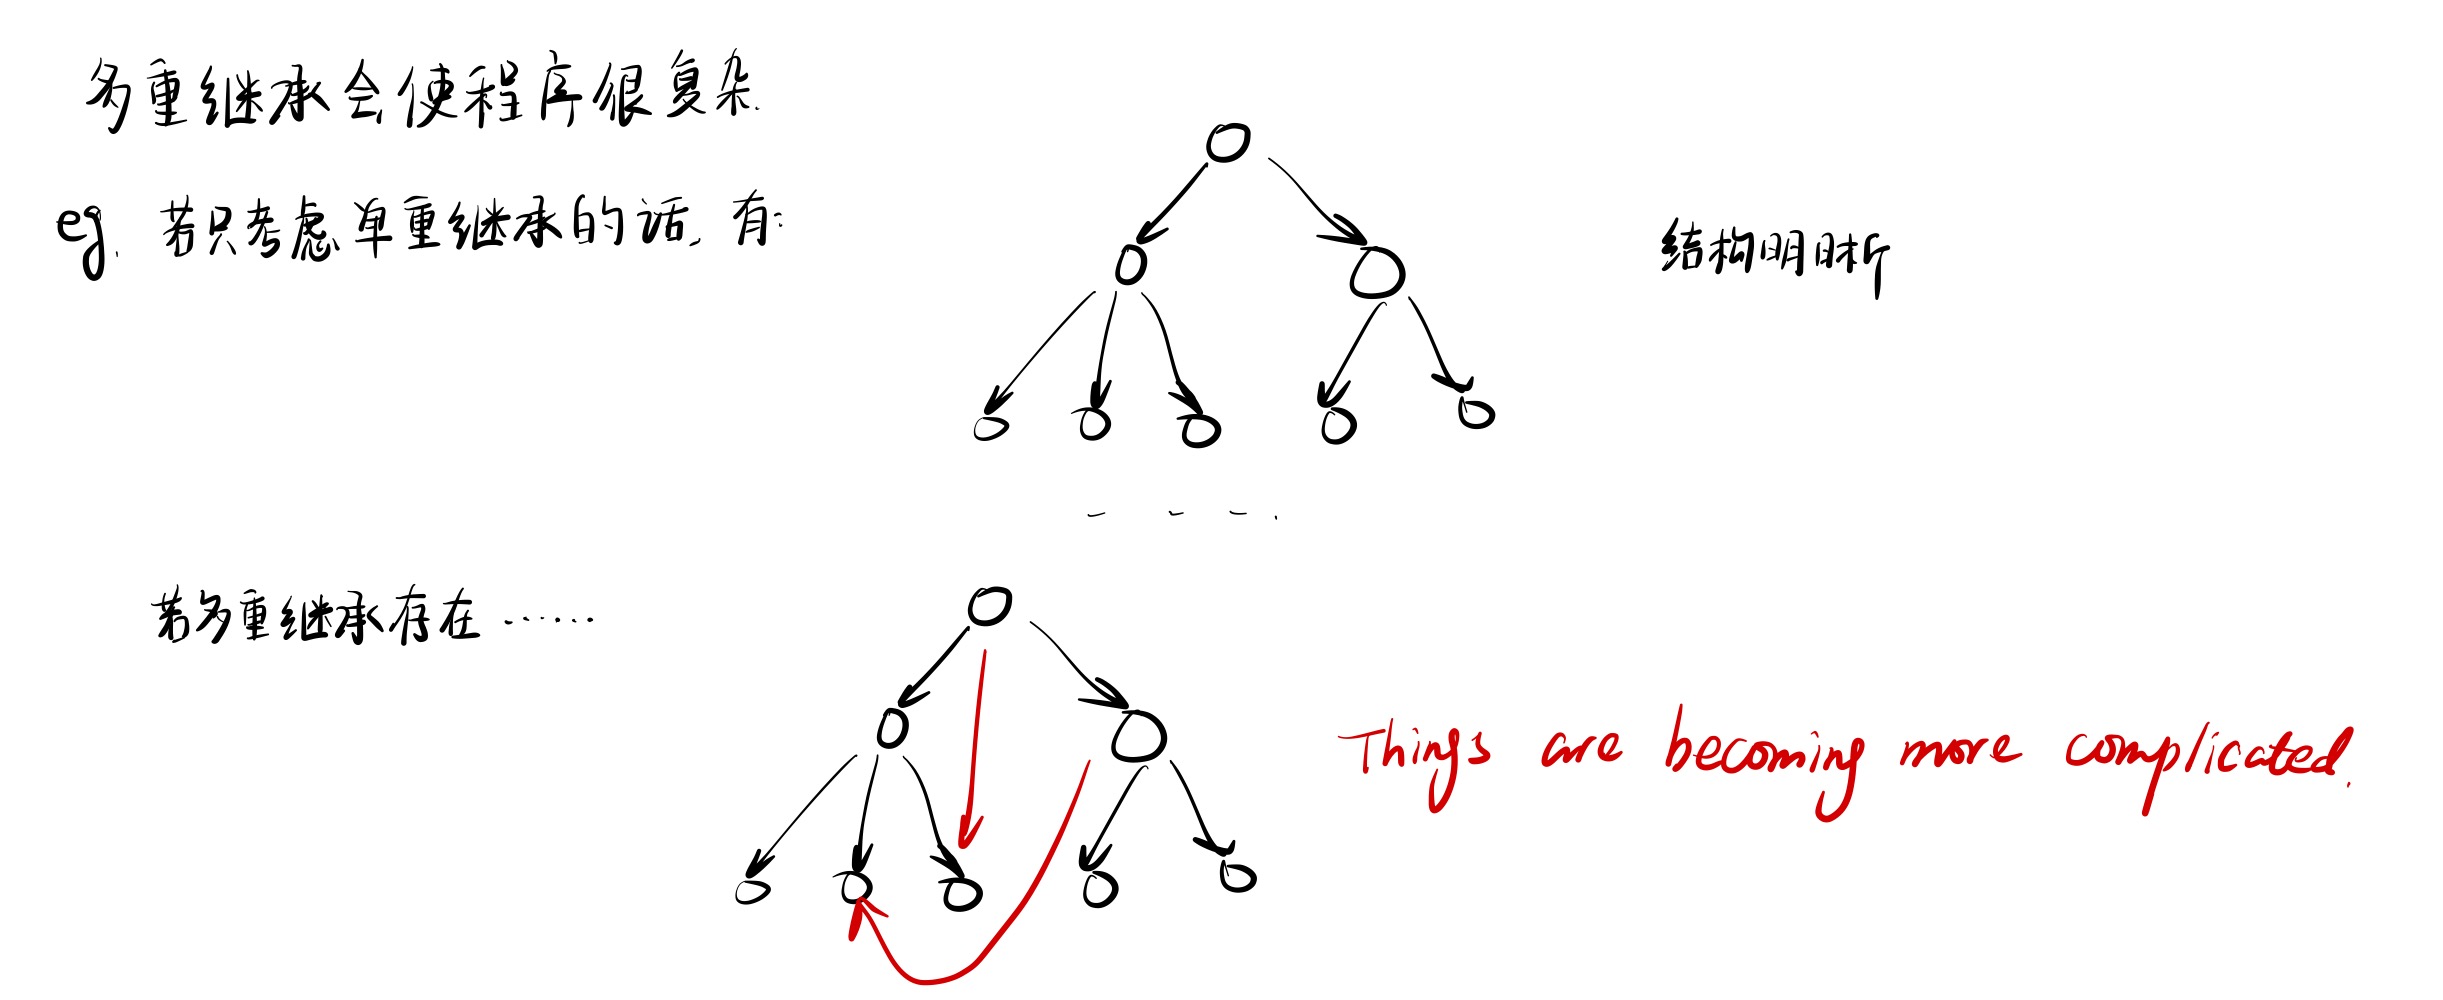 多重继承会使程序很复杂.
eg. 若只考虑单重继承的话, 有:
结构明晰
若多重继承存在 ......
Things are becoming more complicated.